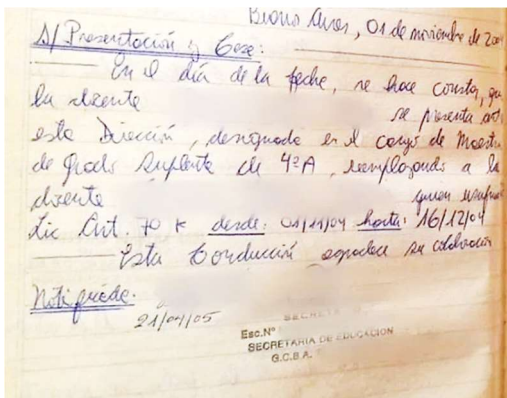 Buenos Aires, 01 de noviembre de 2004
S/ Presentación y Cese:
En el día de la fecha, se hace constar, que
la docente se presenta ante
esta Dirección, designada en el cargo de Maestra
de grado Suplente de 4ºA, reemplazando a la
docente quien usufructúa
Lic Art. 70 K desde: 01/11/04 hasta: 16/12/04
Esta Conducción agradece su colaboración
Notifíquese.
21/04/05
SECRETA
Esc.Nº
SECRETARIA DE EDUCACION
G.C.B.A.